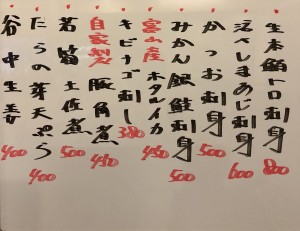 生本鮪トロ刺身 800
活〆しまあじ刺身 600
かつお刺身 500
みかん銀鮭刺身 500
富山産ホタルイカ 450
キビナゴ刺し 380
自家製豚角煮 450
若筍土佐煮 500
たらの芽天ぷら 400
谷中生姜 400